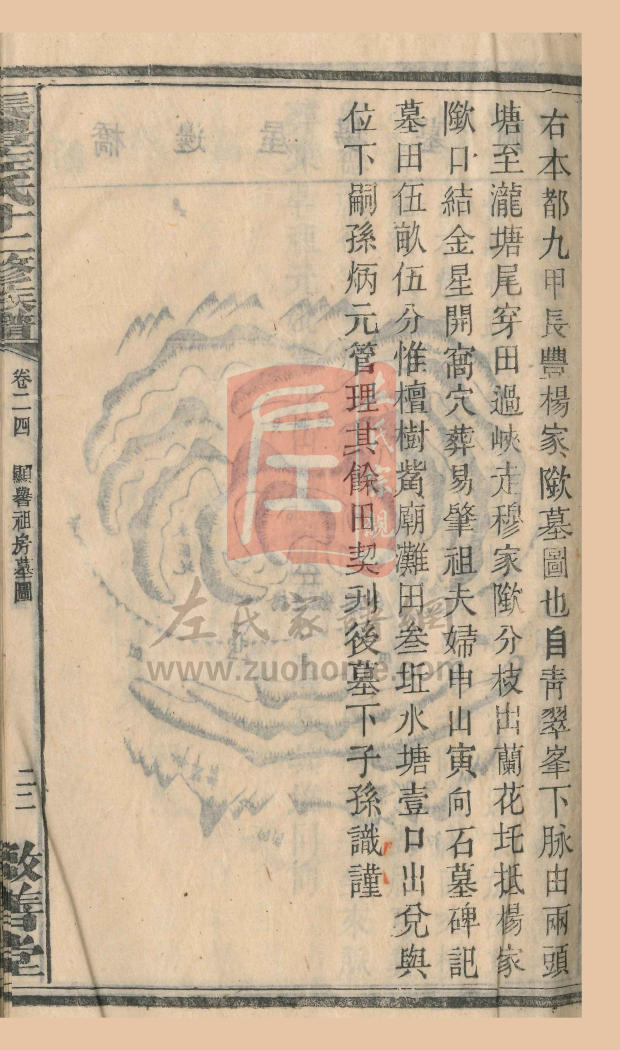 右本都九甲長豐楊家隞墓圖也自青翠峯下脉由兩頭
塘至瀧塘尾穿田過峽走穆家隞分枝出蘭花圫抵楊家
隞口結金星開窩穴葬易肇祖夫婦申山寅向石墓碑記
墓田伍畝伍分惟檀樹觜廟灘田叁坵水塘壹口出兌與
位下嗣孫炳元管理其餘田契列後墓下子孫識謹
左氏十二修族譜
卷二四
顯譽祖房墓圖
二二
敦善堂
左氏家譜網
www.zuohome.com